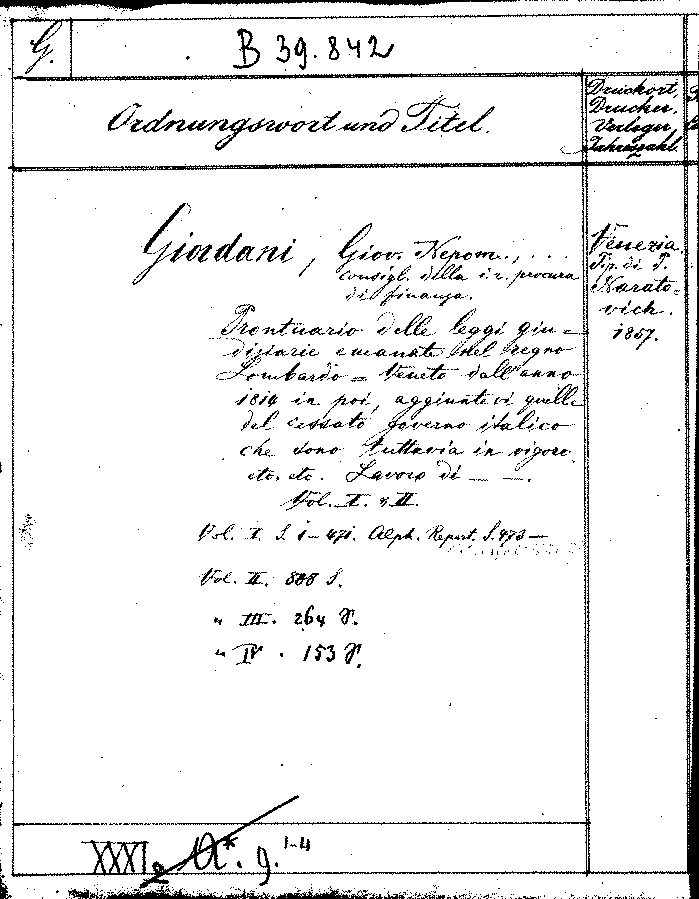 G.
B 39.842
Ordnungswort und Titel.
Druckort,
Drucker,
Verleger,
Jahreszahl.
Giordani, Giov. Nepom., ...
consigl. della i. r. procura
di finanza.
Prontuario delle leggi giu=
diziarie emanate nel regno
Lombardo=Veneto dall'anno
1814 in poi, aggiuntevi quelle
del cessato governo italico
che sono tuttavia in vigore
etc. etc. Lavoro di — —.
Vol. I. & II.
Vol. I. S. 1–471. Alph. Repert. S. 473—
Vol. II. 888 S.
" III. 264 S.
" IV. 153 S.
Venezia.
Tip. di P.
Narato=
vich.
1857.
XXXI A*. 9. 1-4